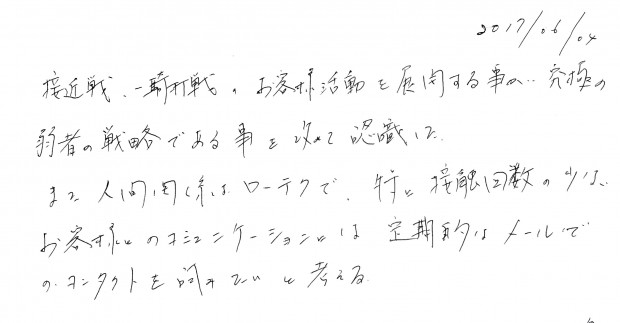 2017/06/04
接近戦、一騎打戦、お客様活動を展開する事が、究極の
弱者の戦略である事を改めて認識した。
また人間関係はローテクで、特に接触回数の少ない
お客様とのコミュニケーションには定期的なメールで
のコンタクトを試みたいと考える。